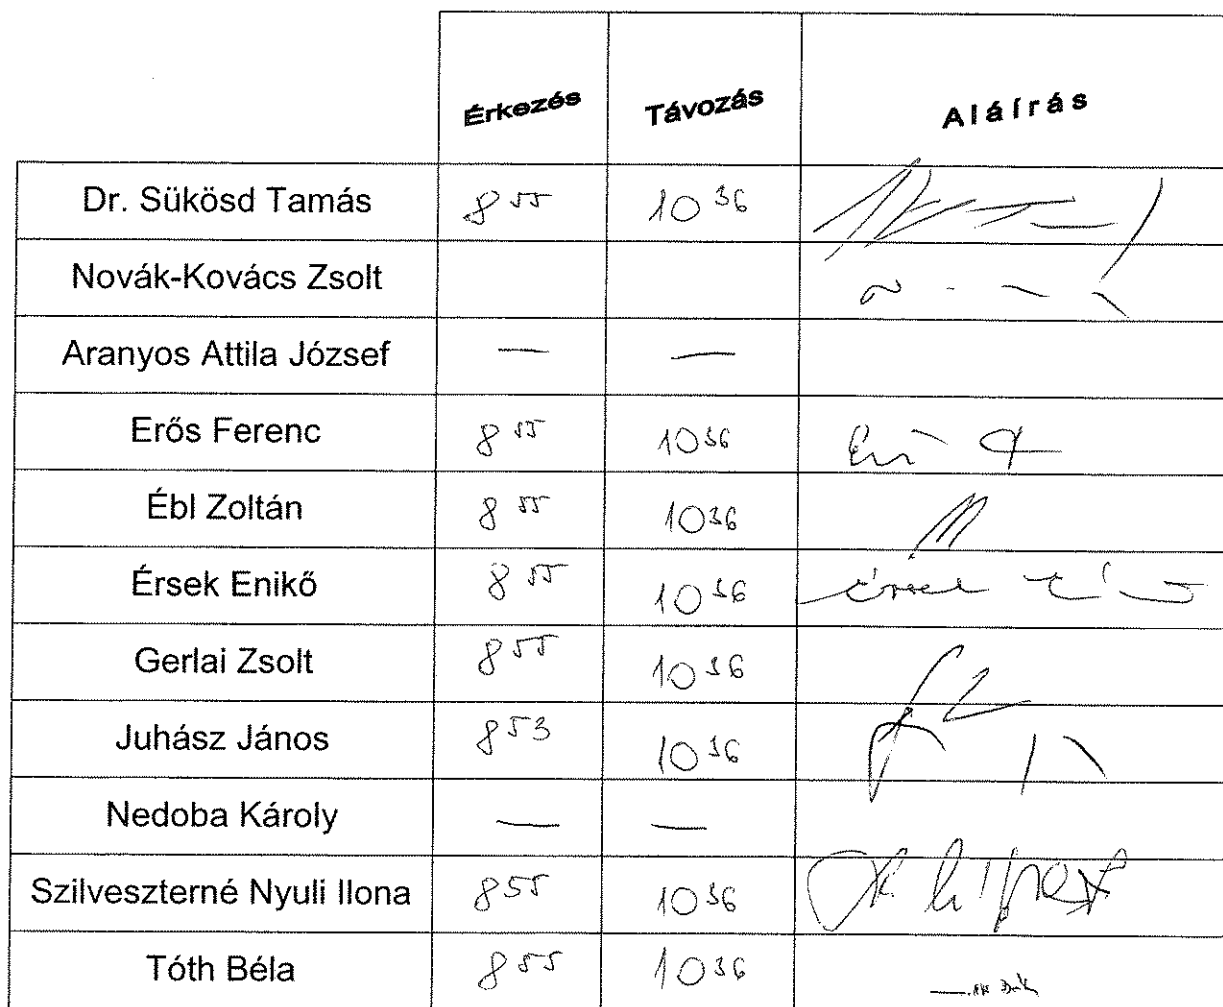 Érkezés Távozás Aláírás
Dr. Sükösd Tamás 8 55 10 36
Novák-Kovács Zsolt
Aranyos Attila József — —
Erős Ferenc 8 55 10 36
Ébl Zoltán 8 55 10 36
Érsek Enikő 8 55 10 36 Érsek
Gerlai Zsolt 8 55 10 36
Juhász János 8 53 10 36
Nedoba Károly — —
Szilveszterné Nyuli Ilona 8 55 10 36
Tóth Béla 8 55 10 36